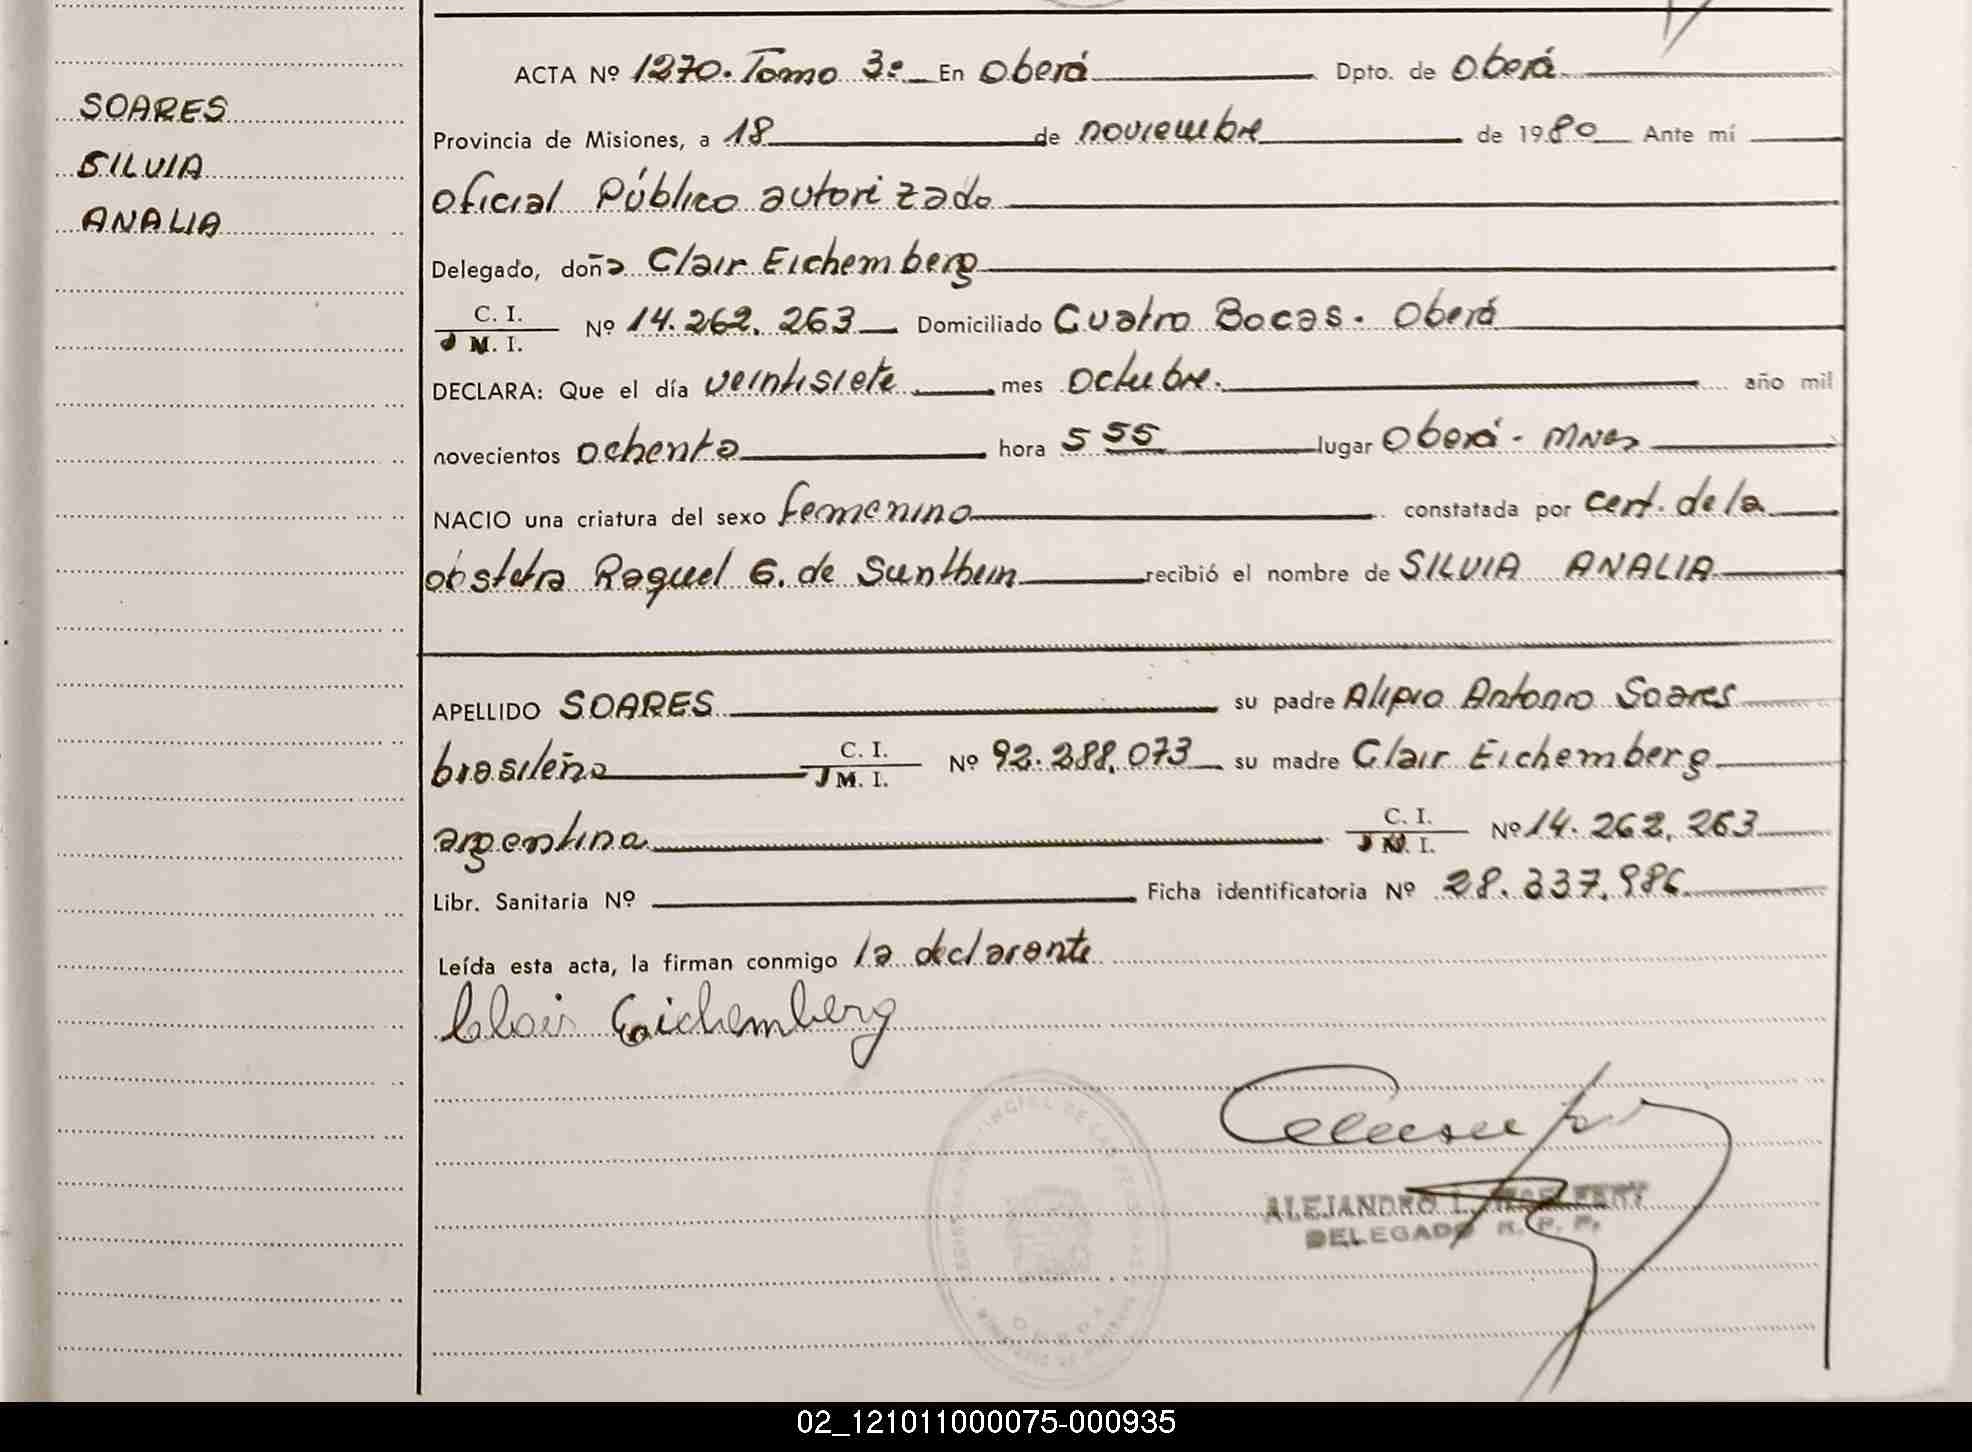 SOARES
SILVIA
ANALIA
ACTA Nº 1270. Tomo 3º En Oberá Dpto. de Oberá
Provincia de Misiones, a 18 de noviembre de 1980 Ante mí
oficial Público autorizado
Delegado, doña Clair Eichemberg
C. I.
M. I. Nº 14.262.263 Domiciliado Cuatro Bocas. Oberá
DECLARA: Que el día veintisiete mes octubre. año mil
novecientos ochenta hora 5 55 lugar Oberá - Mnes
NACIO una criatura del sexo femenino constatada por cert. de la
obstetra Raquel G. de recibió el nombre de SILVIA ANALIA
APELLIDO SOARES su padre Alipio Antonio Soares
brasileño C. I. M. I. Nº 92.288.073 su madre Clair Eichemberg
argentina C. I. M. I. Nº 14.262.263
Libr. Sanitaria Nº Ficha identificatoria Nº 28.337.986
Leída esta acta, la firman conmigo la declarante
Clair Eichemberg
ALEJANDRO L.
DELEGADO R. P. P.
02_121011000075-000935